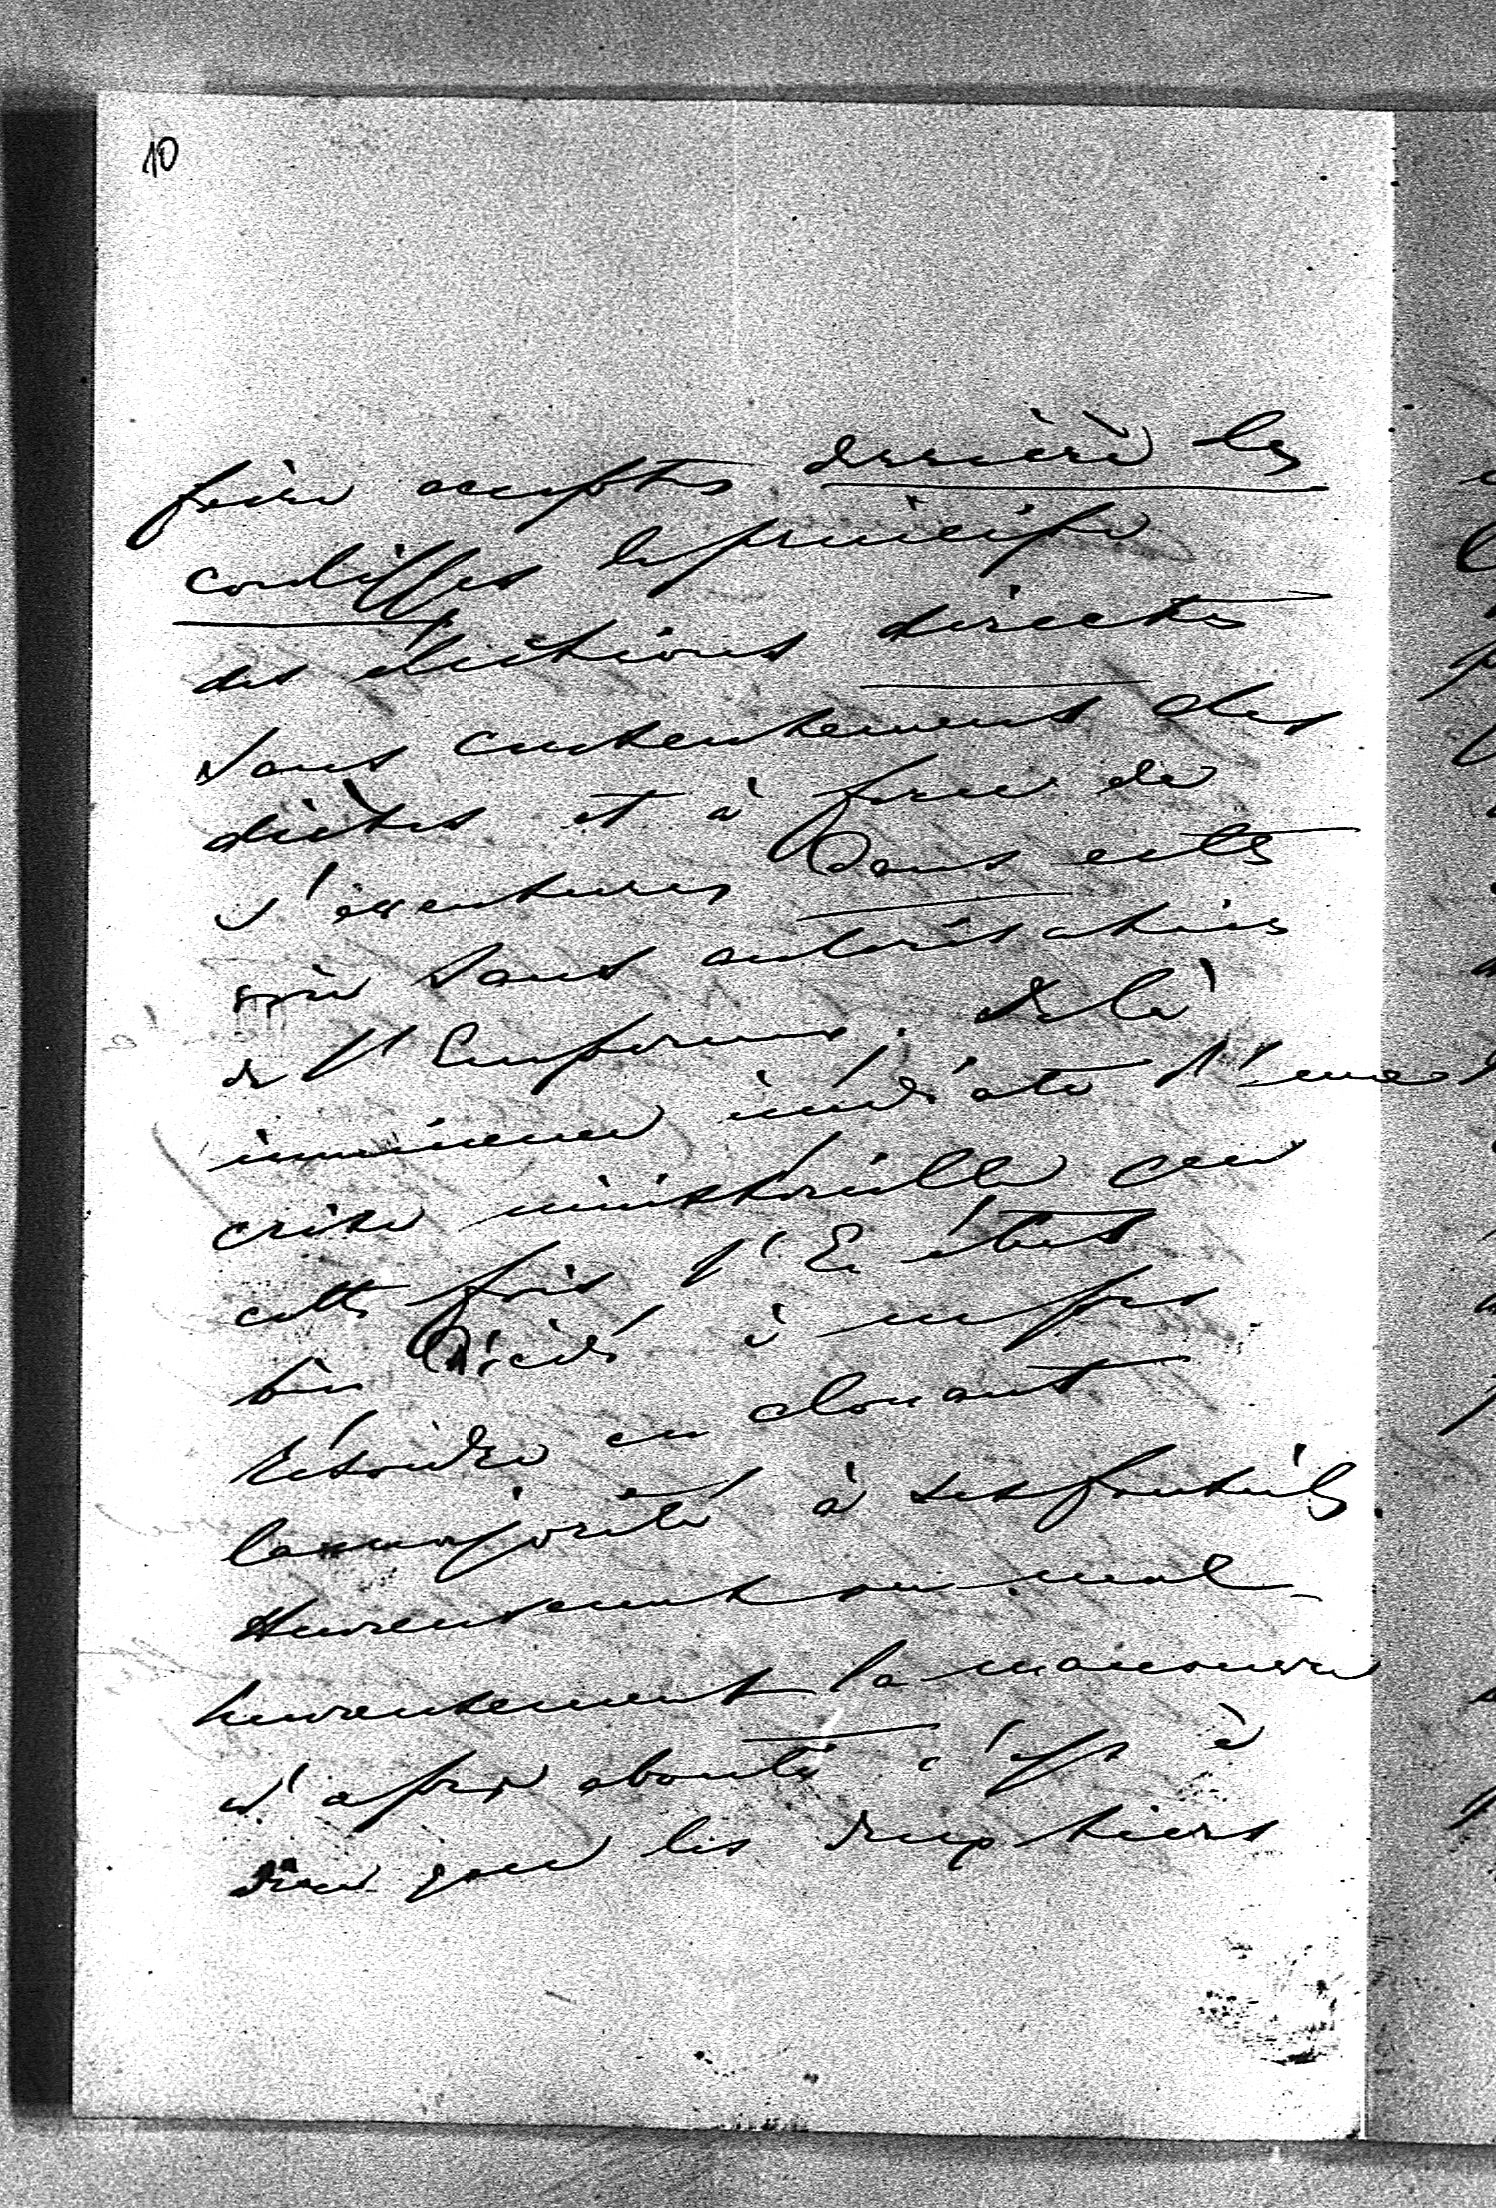 10
faire accepter derrière les
coulisses le principe
des élections directes
sans consentement des
diètes et à force de
s'aventurer dans cette
voie sans autorisation
de l'Empereur. De là
imminence immédiate d'une
crise ministerielle que
cette fois l'E était
bien décidé à ne pas
résoudre en clouant
la majorité à ses fauteuils.
Heureusement ou mal-
heureusement la manoeuvre
n'a pas abouti c'est à
dire que les deux tiers